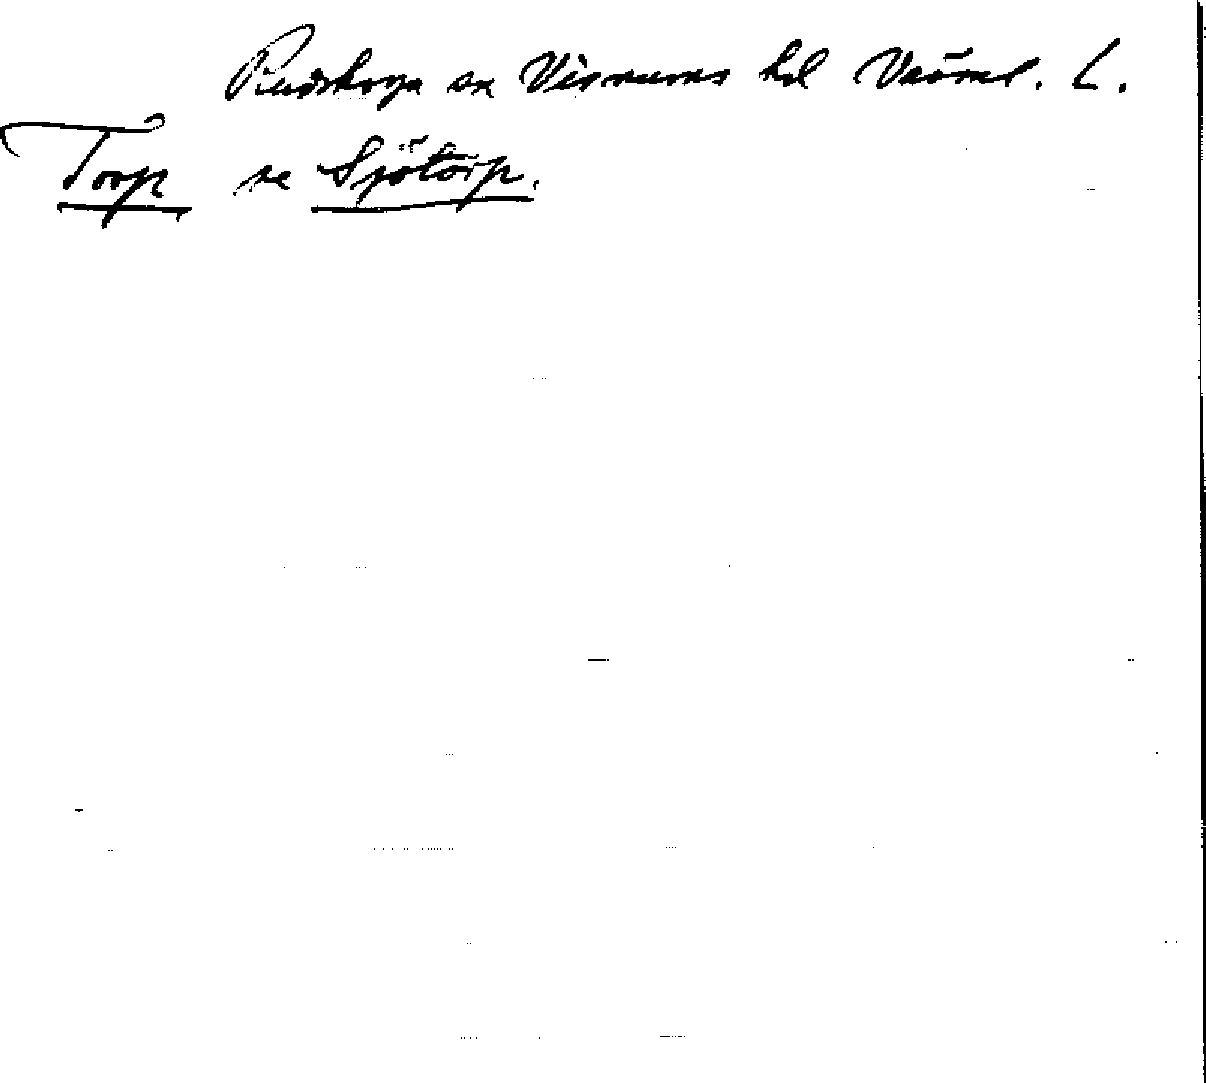 Rudskoga sn Visnums hd Värml. L.
Torp se Sjötorp.